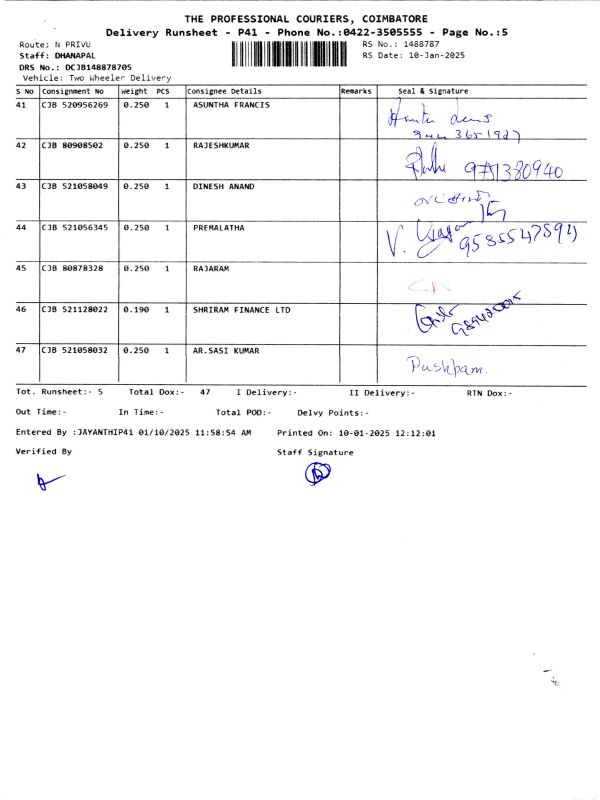 THE PROFESSIONAL COURIERS, COIMBATORE
Delivery Runsheet - P41 - Phone No.:0422-3505555 - Page No.:5
Route: N PRIVU RS No.: 1488787
Staff: DHANAPAL RS Date: 10-Jan-2025
DRS No.: DCJB148878705
Vehicle: Two Wheeler Delivery
S No Consignment No Weight PCS Consignee Details Remarks Seal & Signature
41 CJB 520956269 0.250 1 ASUNTHA FRANCIS
42 CJB 80908502 0.250 1 RAJESHKUMAR
43 CJB 521058049 0.250 1 DINESH ANAND
44 CJB 521056345 0.250 1 PREMALATHA
45 CJB 80878328 0.250 1 RAJARAM
46 CJB 521128022 0.190 1 SHRIRAM FINANCE LTD
47 CJB 521058032 0.250 1 AR.SASI KUMAR Pushpam.
Tot. Runsheet:- 5 Total Dox:- 47 I Delivery:- II Delivery:- RTN Dox:-
Out Time:- In Time:- Total POD:- Delvy Points:-
Entered By :JAYANTHIP41 01/10/2025 11:58:54 AM Printed On: 10-01-2025 12:12:01
Verified By Staff Signature